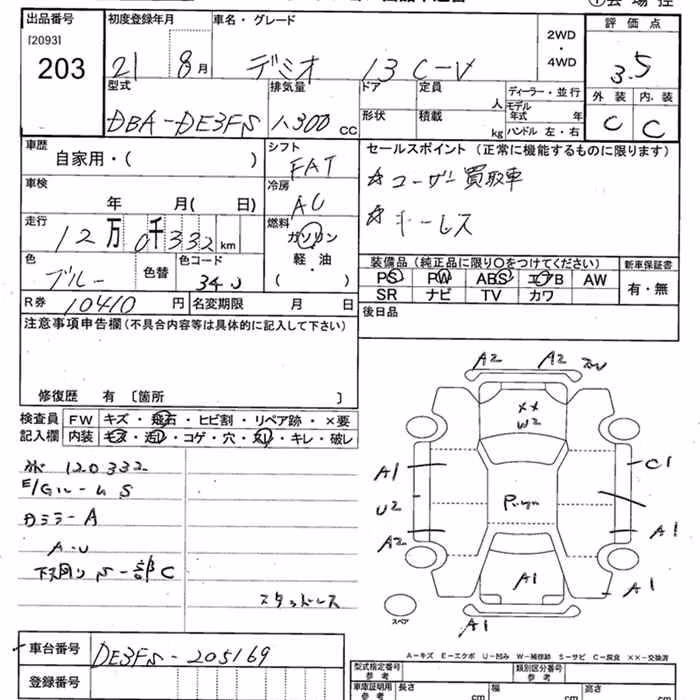 出品番号 初度登録年月 車名・グレード 2WD・4WD 評価点
[2093]
203 21 8月 デミオ 13 C-V 3.5
型式 排気量 ドア 定員 人 ディーラー・並行 外装 内装
DBA-DE3FS 1.300 CC 形状 積載 kg モデル年式 年 C C
ハンドル 左・右
車歴 シフト セールスポイント (正常に機能するものに限ります)
自家用・( ) FAT
☆ユーザー買取車
車検 冷房
年 月( 日) AC
☆キーレス
走行 燃料
12万0千332km ガソリン
軽・油
( )
色 色替 色コード
ブルー 34J
装備品 (純正品に限り〇をつけてください) 新車保証書
PS PW ABS エアB AW 有・無
SR ナビ TV カワ
R券 10410円 名変期限 月 日
後日品
注意事項申告欄(不具合内容等は具体的に記入して下さい)
修復歴 有 〔箇所 〕
検査員 FW キズ・飛石・ヒビ割・リペア跡・×要
記入欄 内装 キズ・汚レ・コゲ・穴・スレ・キレ・破レ
120332
E/GルームS
カミラーA
A・U
下廻りS一部C
スタッドレス
A2 A2
××
W2
A1 C1
U2
A2 A1
A1 A1
A1
スペア
A-キズ E-エクボ U-凹み W-補修跡 S-サビ C-腐食 ××-交換済
車台番号 DE3FS-205169
登録番号
型式指定番号 参考 類別区分番号 参考
車庫証明用 参考 長さ cm 幅 cm 高さ cm